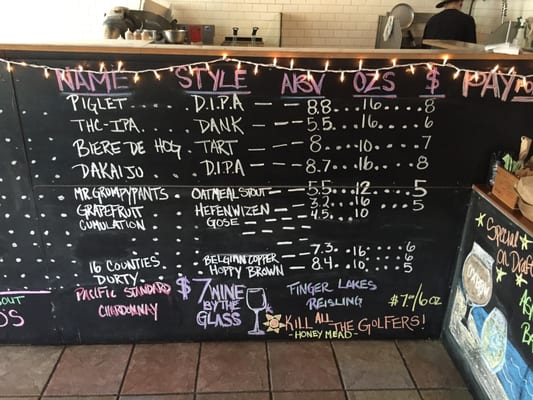 NAME STYLE ABV OZS $ PAY
PIGLET D.I.P.A 8.8 16 8
THC-IPA DANK 5.5 16 6
BIERE DE HOG TART 8 10 7
DAKAIJU D.I.P.A 8.7 16 8
MR.GRUMPYPANTS OATMEAL STOUT 5.5 12 5
GRAPEFRUIT HEFENWIZEN 3.2 16 5
CUMULATION GOSE 4.5 10
16 COUNTIES BELGIAN COPPER 7.3 16 6
DURTY HOPPY BROWN 8.4 10 5
PACIFIC STANDARD
CHARDONNAY
$7 WINE
BY THE
GLASS
FINGER LAKES
REISLING
KILL ALL THE GOLFERS!
-HONEY MEAD-
$7/6oz
Special
on Draft